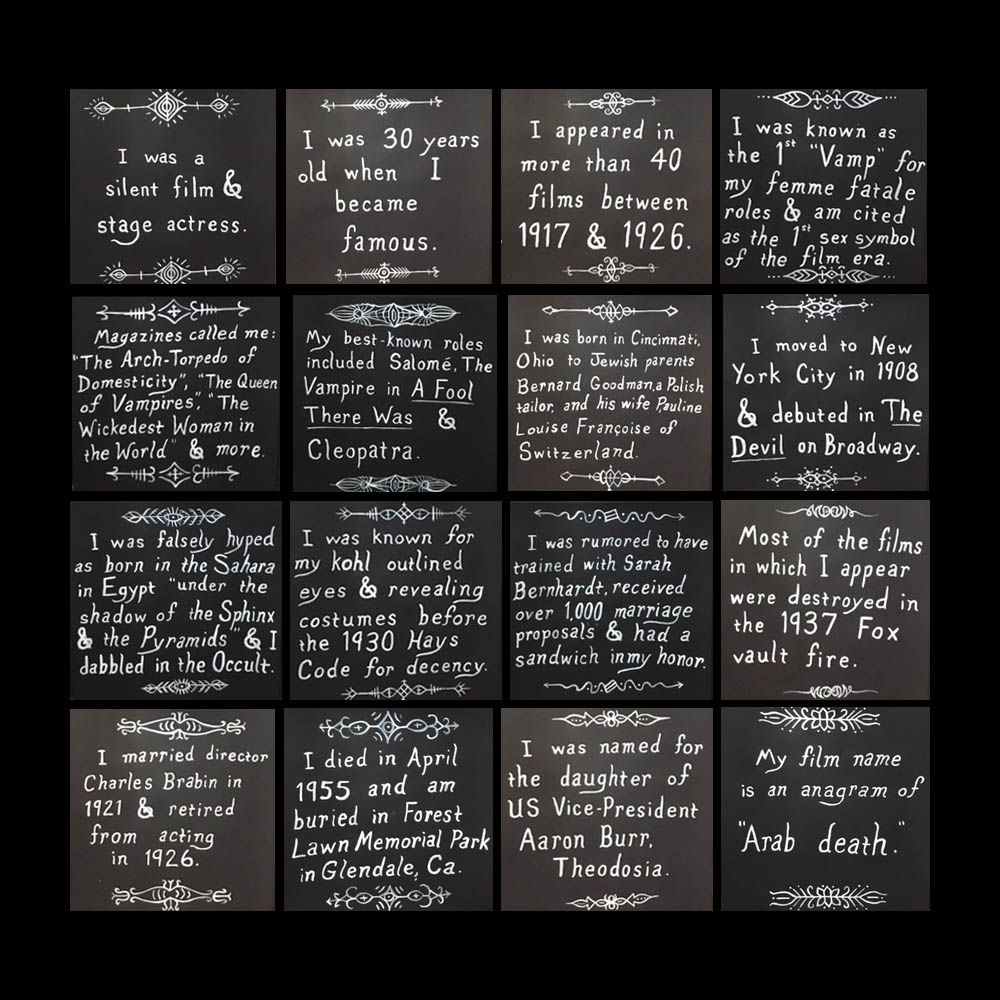 I was a
silent film &
stage actress.
I was 30 years
old when I
became
famous.
I appeared in
more than 40
films between
1917 & 1926.
I was known as
the 1st "Vamp" for
my femme fatale
roles & am cited
as the 1st sex symbol
of the film era.
Magazines called me:
"The Arch-Torpedo of
Domesticity", "The Queen
of Vampires", "The
Wickedest Woman in
the World" & more.
My best-known roles
included Salomé, The
Vampire in A Fool
There Was &
Cleopatra.
I was born in Cincinnati,
Ohio to Jewish parents
Bernard Goodman, a Polish
tailor, and his wife Pauline
Louise Françoise of
Switzerland.
I moved to New
York City in 1908
& debuted in The
Devil on Broadway.
I was falsely hyped
as born in the Sahara
in Egypt "under the
shadow of the Sphinx
& the Pyramids" & I
dabbled in the Occult.
I was known for
my kohl outlined
eyes & revealing
costumes before
the 1930 Hays
Code for decency.
I was rumored to have
trained with Sarah
Bernhardt, received
over 1,000 marriage
proposals & had a
sandwich in my honor.
Most of the films
in which I appear
were destroyed in
the 1937 Fox
vault fire.
I married director
Charles Brabin in
1921 & retired
from acting
in 1926.
I died in April
1955 and am
buried in Forest
Lawn Memorial Park
in Glendale, Ca.
I was named for
the daughter of
US Vice-President
Aaron Burr,
Theodosia.
My film name
is an anagram of
"Arab death."